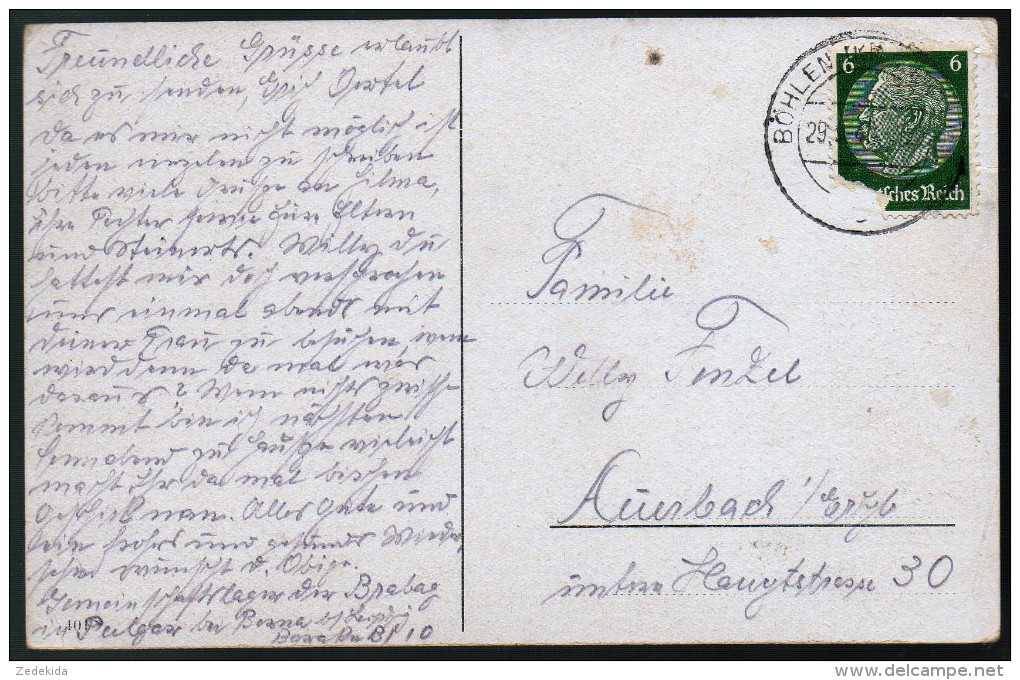 Freundliche Grüsse erlaubt
sich zu senden, Erich Oertel
da es mir nicht möglich ist
jeden einzelen zu schreiben
bitte viele Grüße an Hilma,
ihre Tochter sowie Eure Eltern
und Steinerts. Willy du
hattest mir doch versprochen
uns einmal abends mit
deiner Frau zu besuchen, wenn
wird denn da mal was
daraus? Wenn nichts zwisch
kommt bin ich nächsten
Sonnabend zu Hause vieleicht
macht Ihr da mal bischen
nan. Alles Gute und
ein frohes und gesundes Wieder
sehn wünscht d. Obige.
Gemeinschaftslager der Brabag
in Pulgar bei Borna b/ Leipzig
Baracke B I 10
BÖHLEN
29
6 6
sches Reich
Familie
Willy Fenzel
Auerbach i/ Erzgb
untere Hauptstrasse 30
Zedekida
delcampe.net